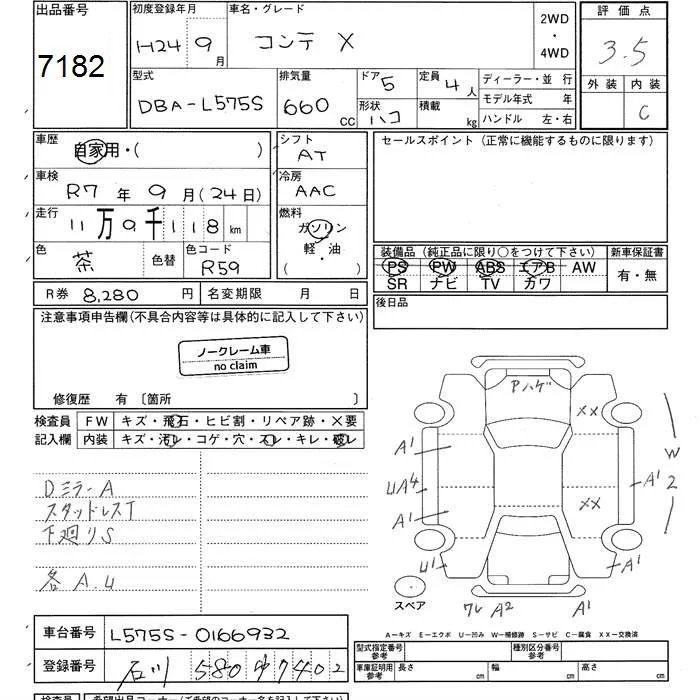 出品番号
7182
初度登録年月
H24 9月
車名・グレード
コンテ X
2WD
・
4WD
評価点
3.5
外装 内装
C
型式
DBA-L575S
排気量
660 CC
ドア 5
形状 ハコ
定員 4人
積載 kg
ディーラー・並行
モデル年式 年
ハンドル 左・右
車歴
自家用・( )
シフト
AT
セールスポイント(正常に機能するものに限ります)
車検
R7年 9月(24日)
冷房
AAC
走行
11万9千118km
燃料
ガソリン
軽・油
( )
色
茶
色替
色コード
R59
装備品(純正品に限り○をつけて下さい)
PS PW ABS エアB AW
SR ナビ TV カワ
新車保証書
有・無
R券 8,280円
名変期限 月 日
後日品
注意事項申告欄(不具合内容等は具体的に記入して下さい)
ノークレーム車
no claim
修復歴 有〔箇所 〕
検査員
記入欄
FW キズ・飛石・ヒビ割・リペア跡・X要
内装 キズ・汚レ・コゲ・穴・スレ・キレ・破レ
DミラーA
スタッドレスT
下廻りS
各A.U
Pハゲ
XX
A1
UA4
A1
U1
XX
A1
W
2
A1
スペア
ワレ A2
A1
A―キズ E―エクボ U―凹み W―補修跡 S―サビ C―腐食 XX―交換済
車台番号 L575S-0166932
登録番号 石川 580 ゆ7402
型式指定番号
参考
種別区分番号
参考
車庫証明用
参考
長さ cm
幅 cm
高さ cm
検査員 希望出品コーナー(ご希望のコーナー名を記入下さい)